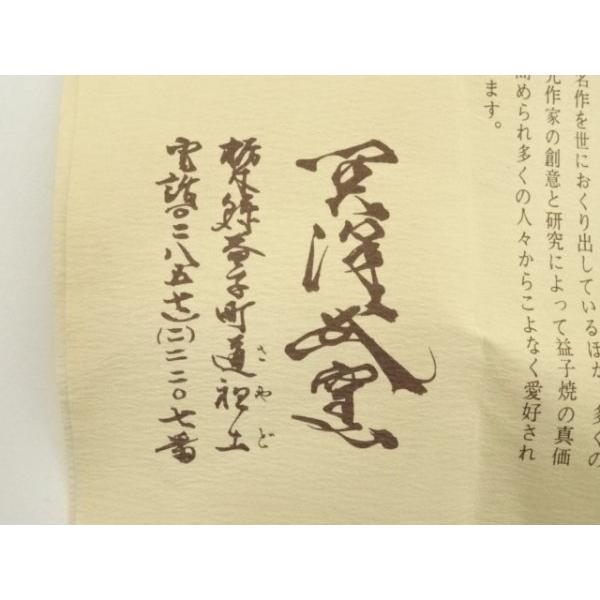 名作を世におくり出しているほか、多くの
元作家の創意と研究によって益子焼の真価
高められ多くの人々からこよなく愛好され
ます。
窯
栃木県益子町道祖土
さやど
電話〇二八五七(二)二二〇七番